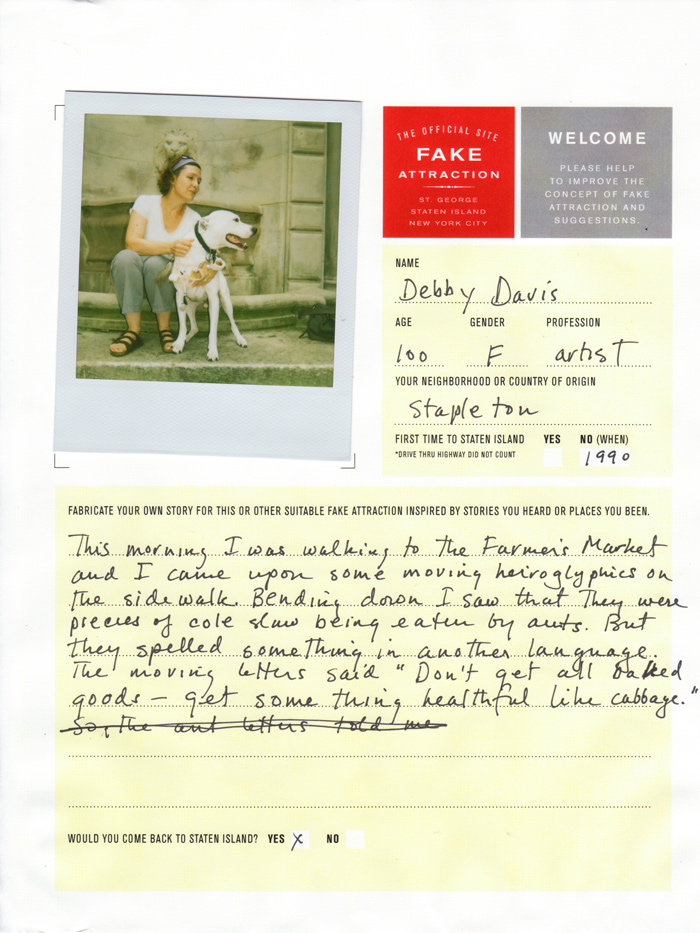 THE OFFICIAL SITE
FAKE
ATTRACTION
ST. GEORGE
STATEN ISLAND
NEW YORK CITY
WELCOME
PLEASE HELP
TO IMPROVE THE
CONCEPT OF FAKE
ATTRACTION AND
SUGGESTIONS.
NAME
Debby Davis
AGE GENDER PROFESSION
100 F artist
YOUR NEIGHBORHOOD OR COUNTRY OF ORIGIN
Stapleton
FIRST TIME TO STATEN ISLAND YES NO (WHEN)
*DRIVE THRU HIGHWAY DID NOT COUNT 1990
FABRICATE YOUR OWN STORY FOR THIS OR OTHER SUITABLE FAKE ATTRACTION INSPIRED BY STORIES YOU HEARD OR PLACES YOU BEEN.
This morning I was walking to the Farmer's Market
and I came upon some moving heiroglyphics on
the sidewalk. Bending down I saw that they were
pieces of cole slaw being eaten by ants. But
they spelled something in another language.
The moving letters said "Don't get all baked
goods – get some thing healthful like cabbage."
So, the ant letters told me
WOULD YOU COME BACK TO STATEN ISLAND? YES X NO